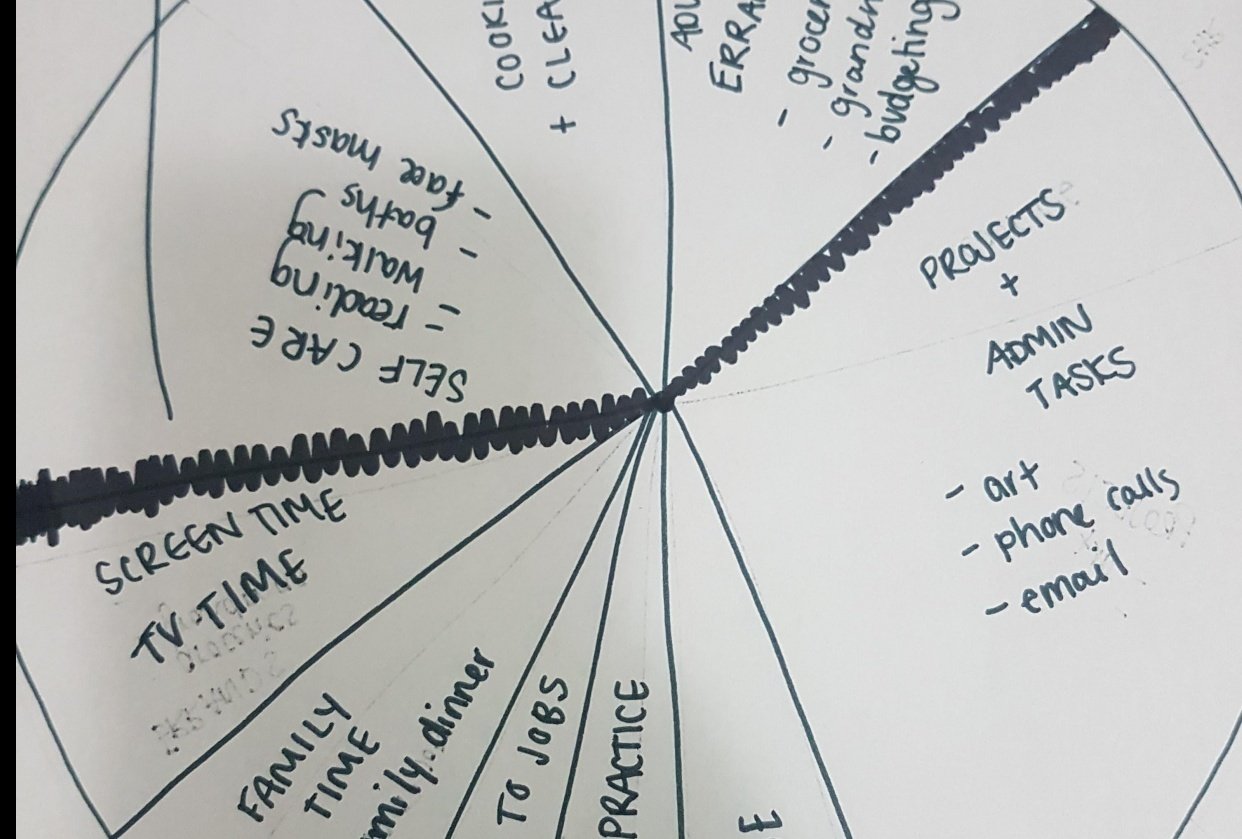 COOKI
+ CLEA
ADU
ERRA
- grocer
- grandm
- budgeting
PROJECTS
+
ADMIN
TASKS
- art
- phone calls
- email
SELF CARE
- reading
- walking
- baths
- face masks
SCREEN TIME
TV TIME
FAMILY
TIME
mily dinner
TO JOBS
PRACTICE
E